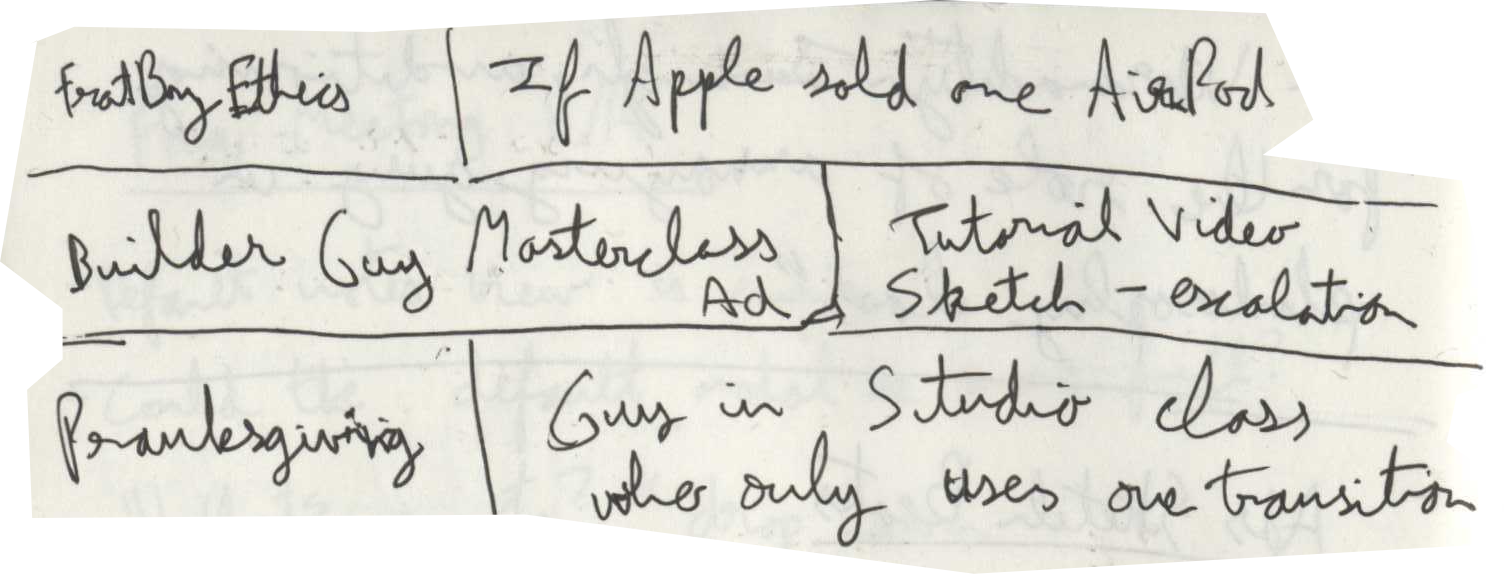 FratBoy Ethics
If Apple sold one AirPod
Builder Guy Masterclass
Ad
Tutorial Video
Sketch - escalation
Pranksgiving
Guy in Studio class
who only uses one transition